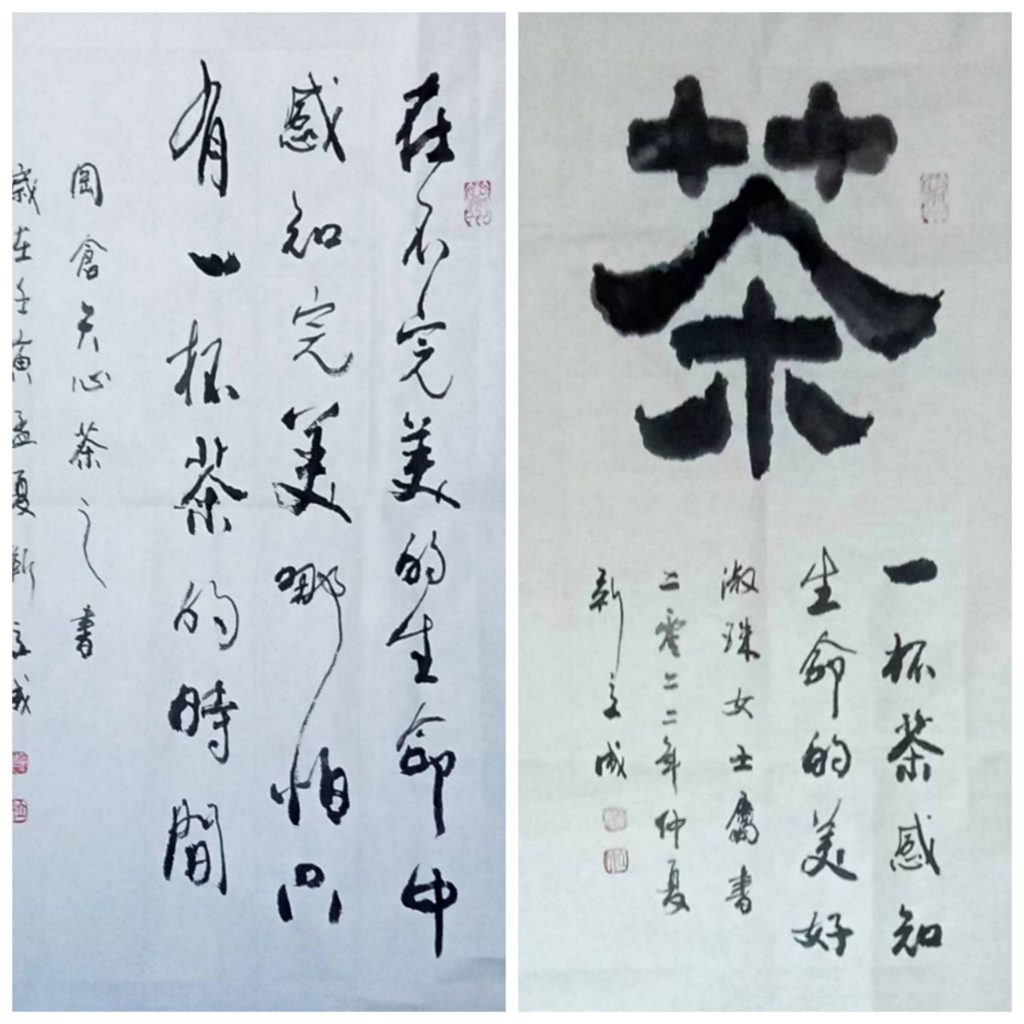 在不完美的生命中
感知完美哪怕只
有一杯茶的時間
岡倉天心茶之書
歲在壬寅孟夏新立成
茶
一杯茶感知
生命的美好
淑珠女士屬書
二零二二年仲夏
新立成